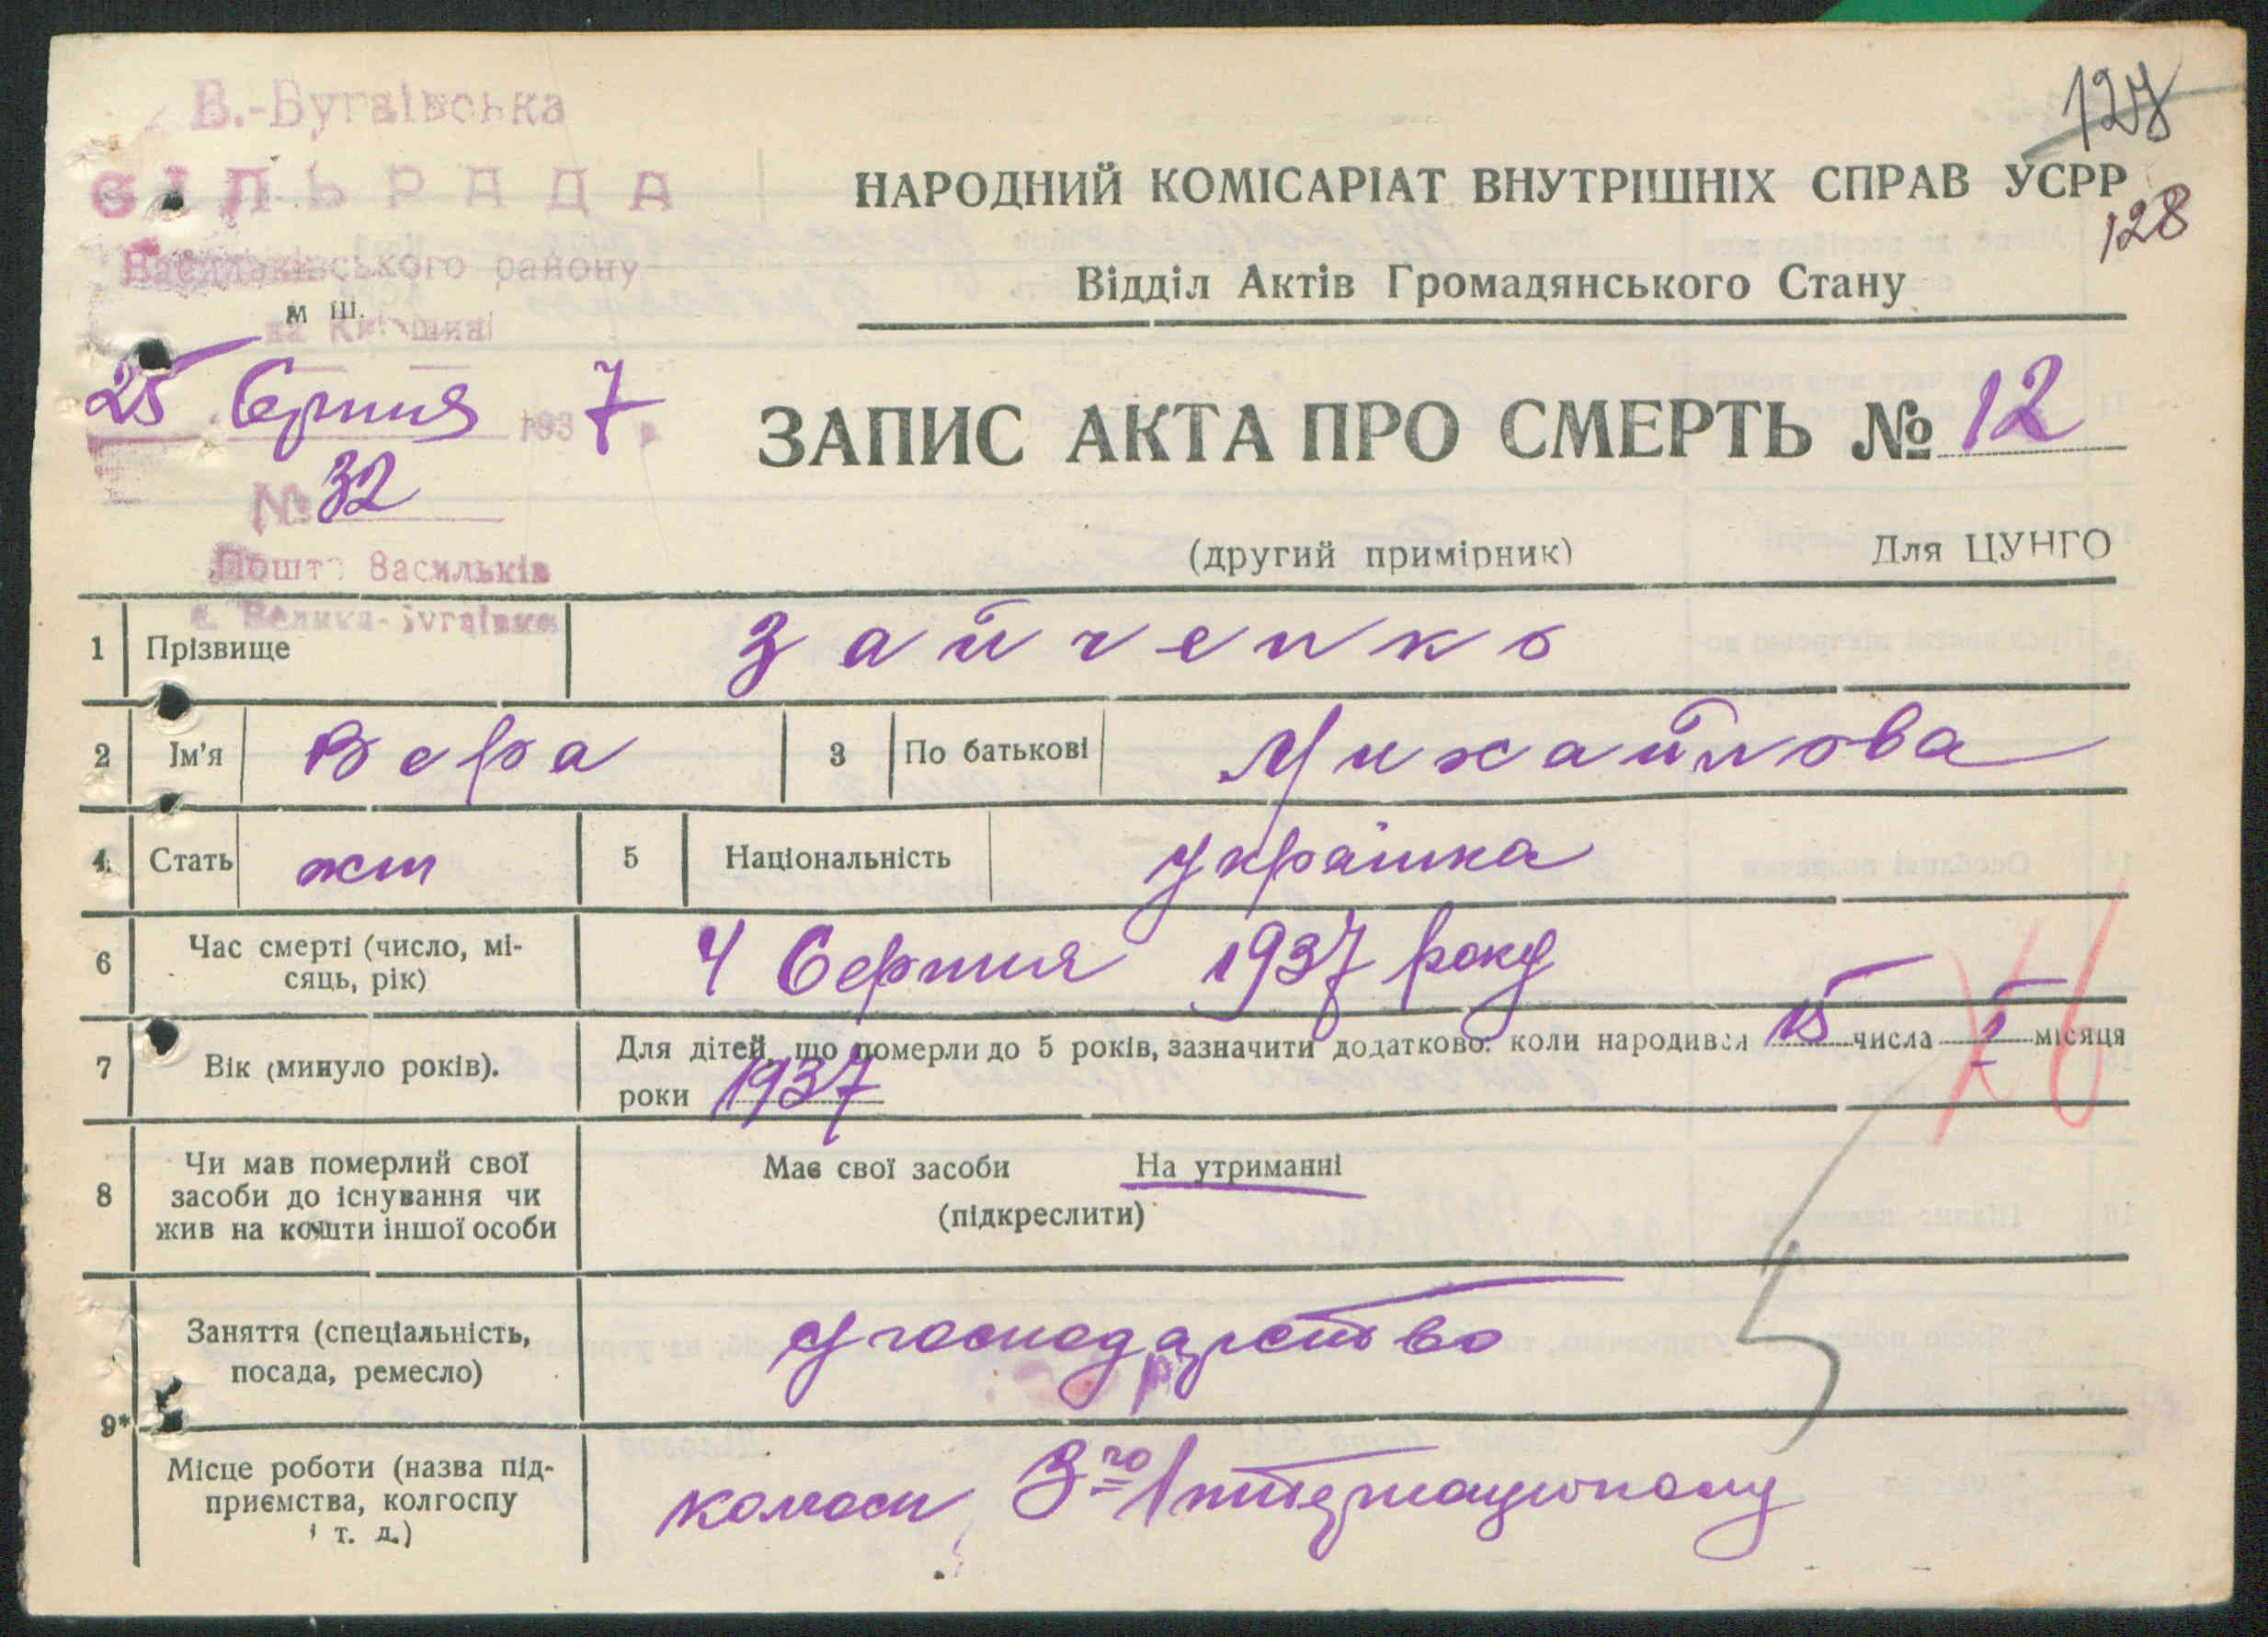 В.-Бугаївська
СІЛЬРАДА
Васильківського району
м Ш.
на Київщині
25 Серпня 1937 р.
№ 32
Пошта Васильків
с. Велика-Бугаївка
127
128
НАРОДНИЙ КОМІСАРІАТ ВНУТРІШНІХ СПРАВ УСРР
Відділ Актів Громадянського Стану
ЗАПИС АКТА ПРО СМЕРТЬ № 12
(другий примірник) Для ЦУНГО
1 Прізвище Зайченко
2 Ім'я Вера 3 По батькові Михайлова
4 Стать жін 5 Національність українка
6 Час смерті (число, мі-
сяць, рік) 4 Серпня 1937 року
7 Вік (минуло років). Для дітей, що померли до 5 років, зазначити додатково: коли народився 15 числа місяця
роки 1937
8 Чи мав померлий свої
засоби до існування чи
жив на кошти іншої особи
Має свої засоби На утриманні
(підкреслити)
9* Заняття (спеціальність,
посада, ремесло) У господарство
Місце роботи (назва під-
приємства, колгоспу
і т. д.) колгосп 3го Інтернаціоналу